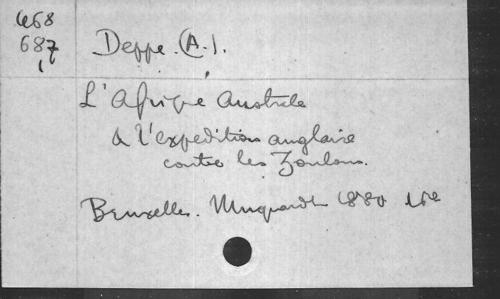 468
687 Deppe. (A.).
L'Afrique Australe
& l'expédition anglaise
contre les Zoulous.
Bruxelles. Muquardt 1880